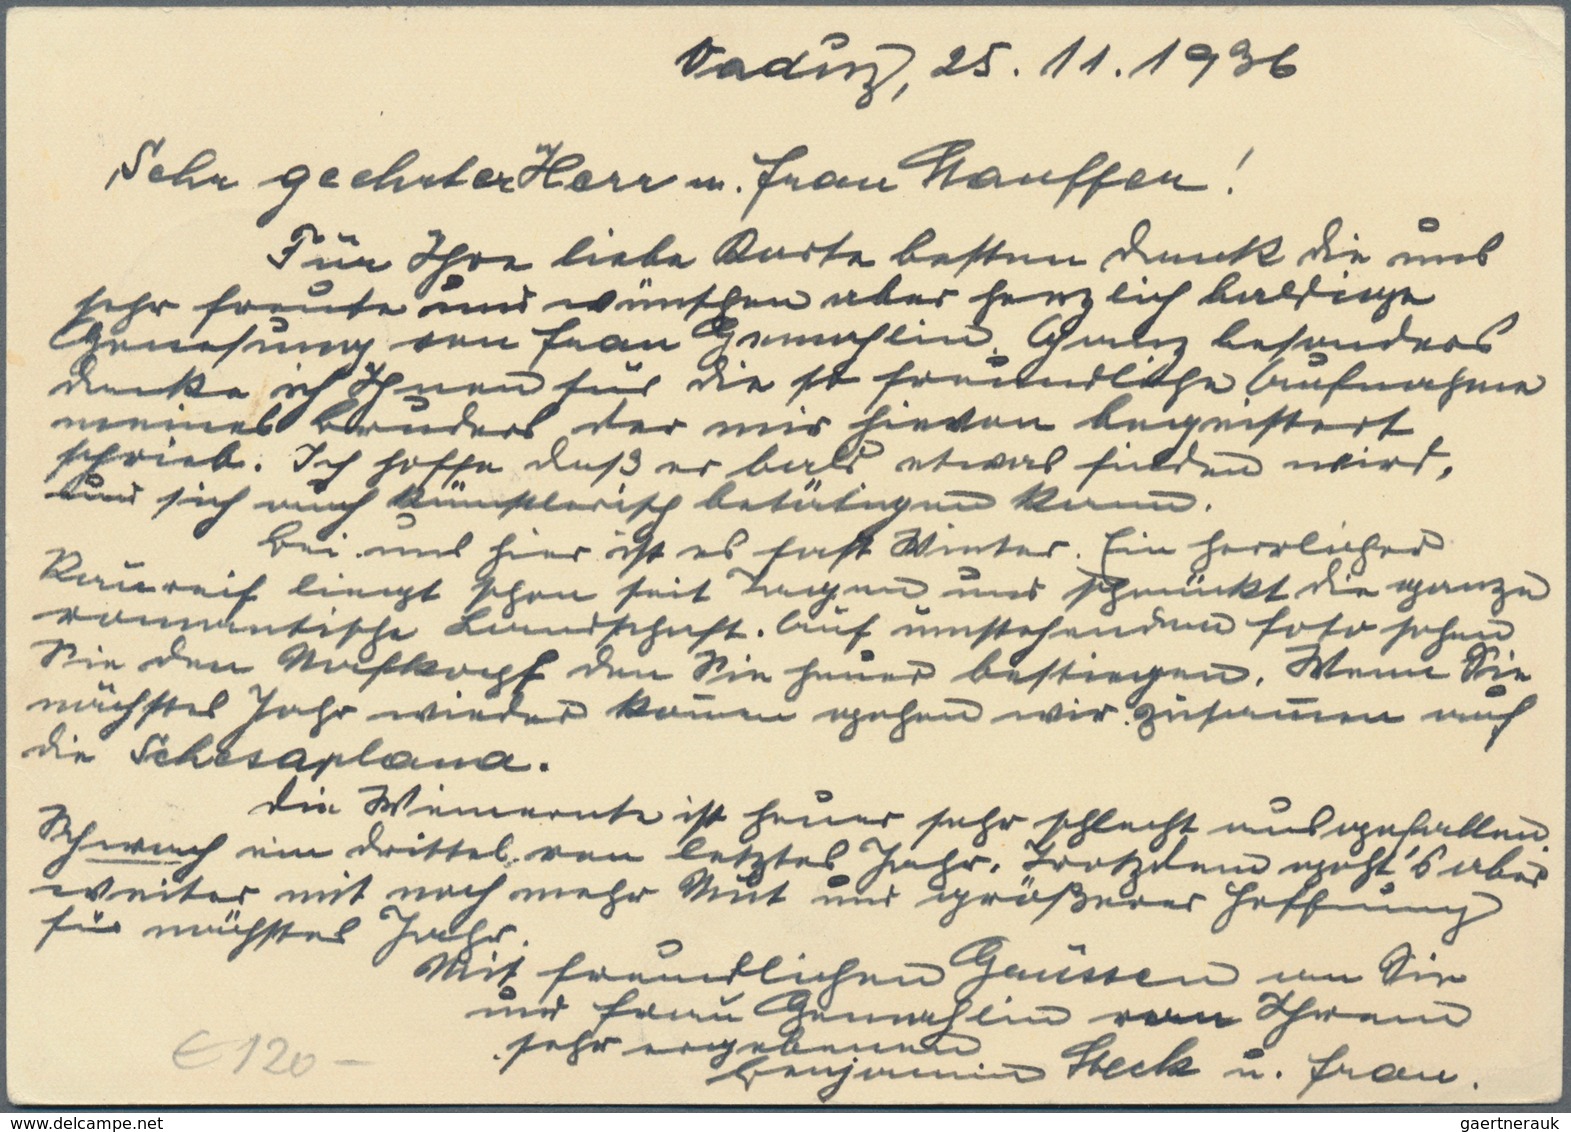 Vaduz, 25. 11. 1936
Sehr geehrter Herr u. Frau Stauffer!
Für Ihre liebe Karte besten Dank die uns
sehr freute und wünschen aber herzlich baldige
Genesung von Frau Gemahlin. Ganz besonders
danke ich Ihnen für die so freundliche Aufnahme
meines Bruders der mir hievon begeistert
schrieb. Ich hoffe daß er bald etwas finden wird,
und sich auch künstlerisch betätigen kann.
Bei uns hier ist es fast Winter. Ein herrlicher
Raureif liegt schon seit Tagen und schmückt die ganze
romantische Landschaft. Auf umstehendem Foto sehen
Sie den Nafkopf den Sie heuer bestiegen. Wenn Sie
nächstes Jahr wieder kom̅en gehen wir zusam̅en auf
die Schesaplana.
Die Weinernte ist heuer sehr schlecht ausgefallen.
Schwach ein Drittel von letztes Jahr. Trotzdem geht's aber
weiter mit noch mehr Mut und größerer Hoffnung
für nächstes Jahr.
Mit freundlichen Grüssen an Sie
und Frau Gemahlin von Ihrem
sehr ergebenen
Benjamin Steck u. Frau.
€120-
www.delcampe.net
gaertnerauk